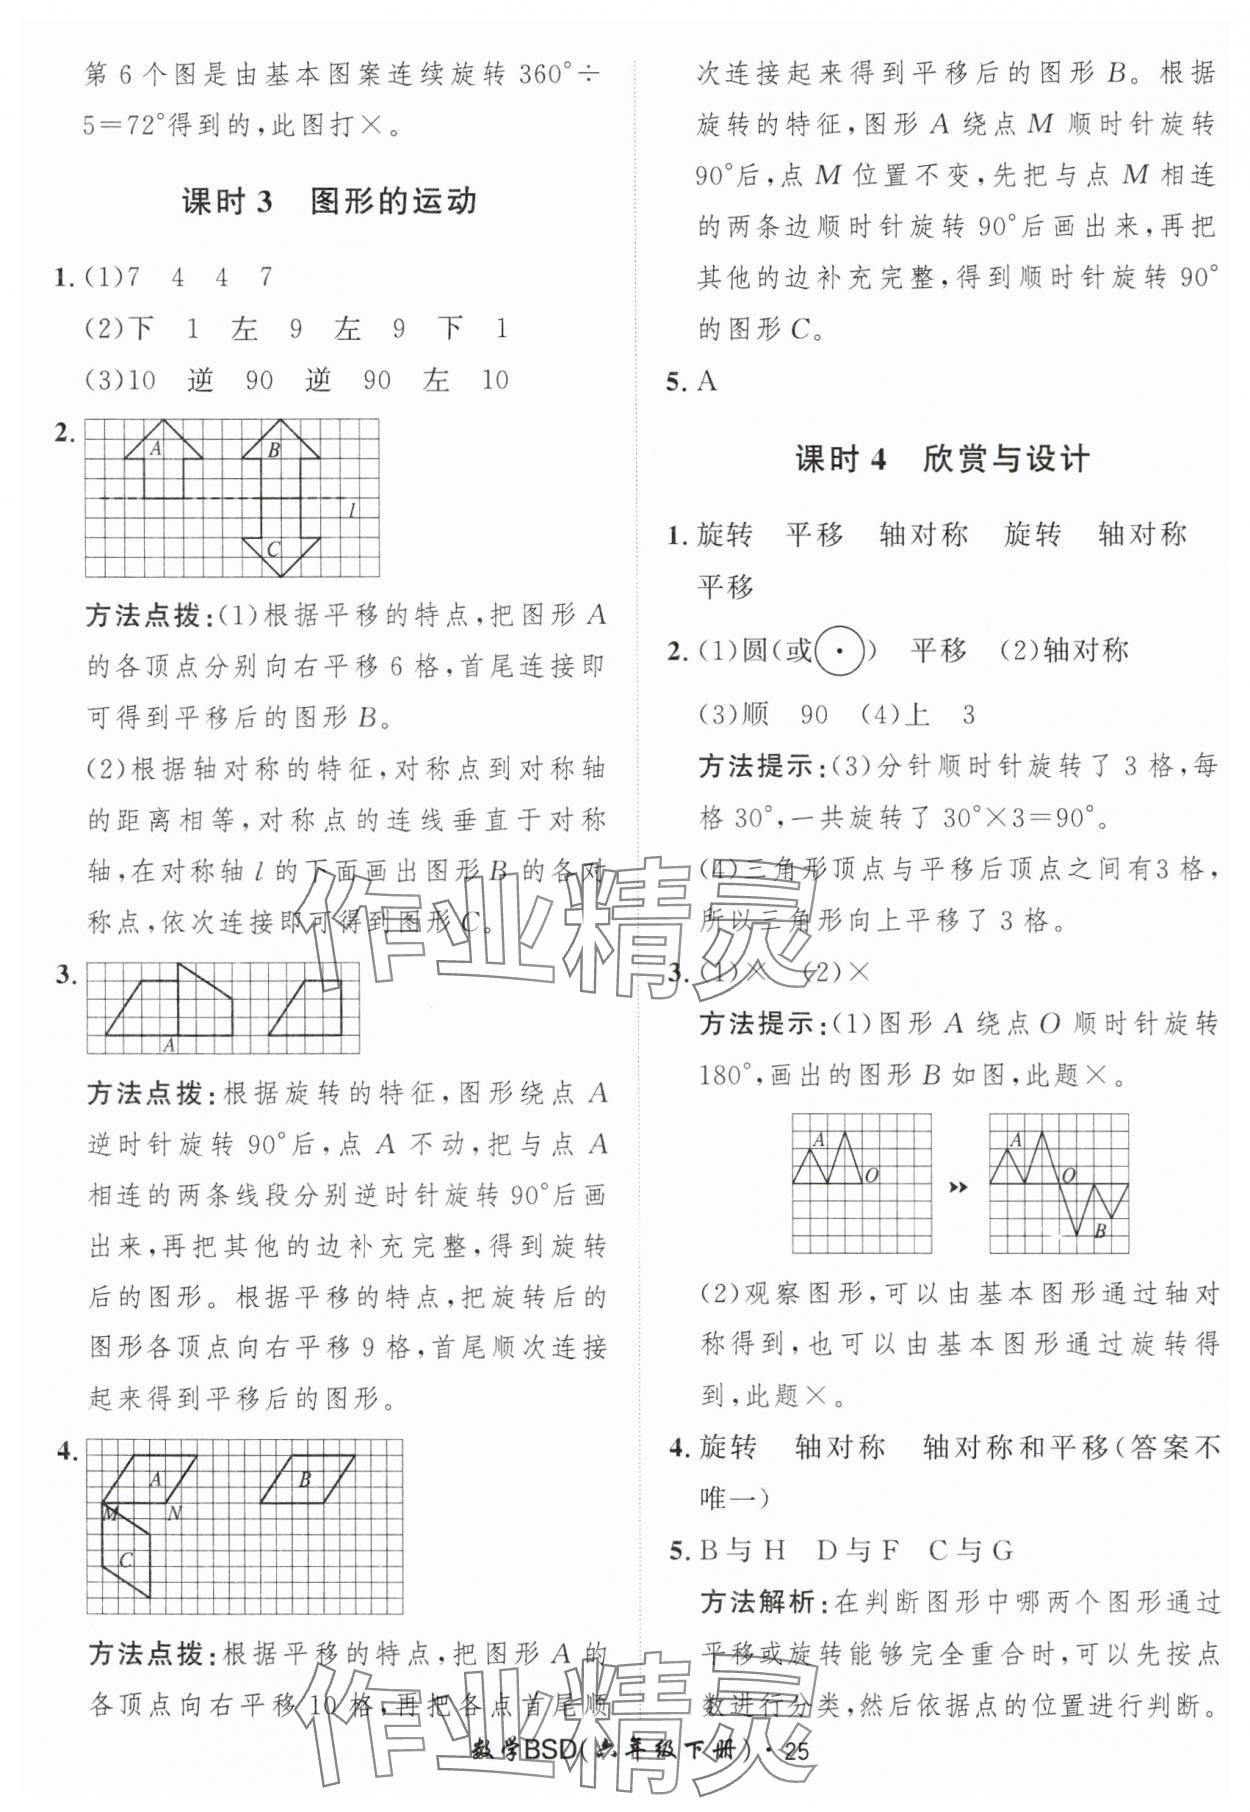 第 6 个图是由基本图案连续旋转 360°÷
5＝72°得到的，此图打×。
课时 3　图形的运动
1. (1)7　4　4　7
(2)下　1　左　9　左　9　下　1
(3)10　逆　90　逆　90　左　10
2.
A
B
l
C
方法点拨：(1)根据平移的特点，把图形 A
的各顶点分别向右平移 6 格，首尾连接即
可得到平移后的图形 B。
(2)根据轴对称的特征，对称点到对称轴
的距离相等，对称点的连线垂直于对称
轴，在对称轴 l 的下面画出图形 B 的各对
称点，依次连接即可得到图形 C。
3.
A
方法点拨：根据旋转的特征，图形绕点 A
逆时针旋转 90°后，点 A 不动，把与点 A
相连的两条线段分别逆时针旋转 90°后画
出来，再把其他的边补充完整，得到旋转
后的图形。根据平移的特点，把旋转后的
图形各顶点向右平移 9 格，首尾顺次连接
起来得到平移后的图形。
4.
A
B
M
N
C
方法点拨：根据平移的特点，把图形 A 的
各顶点向右平移 10 格，再把各点首尾顺
次连接起来得到平移后的图形 B。根据
旋转的特征，图形 A 绕点 M 顺时针旋转
90°后，点 M 位置不变，先把与点 M 相连
的两条边顺时针旋转 90°后画出来，再把
其他的边补充完整，得到顺时针旋转 90°
的图形 C。
5. A
课时 4　欣赏与设计
1. 旋转　平移　轴对称　旋转　轴对称
平移
2. (1)圆(或 )　平移　(2)轴对称
(3)顺　90　(4)上　3
方法提示：(3)分针顺时针旋转了 3 格，每
格 30°，一共旋转了 30°×3＝90°。
(4)三角形顶点与平移后顶点之间有3 格，
所以三角形向上平移了 3 格。
3. (1)×　(2)×
方法提示：(1)图形 A 绕点 O 顺时针旋转
180°，画出的图形 B 如图，此题×。
A
O
A
O
B
(2)观察图形，可以由基本图形通过轴对
称得到，也可以由基本图形通过旋转得
到，此题×。
4. 旋转　轴对称　轴对称和平移(答案不
唯一)
5. B 与 H　D 与 F　C 与 G
方法解析：在判断图形中哪两个图形通过
平移或旋转能够完全重合时，可以先按点
数进行分类，然后依据点的位置进行判断。
数学BSD(六年级下册)・25
作业精灵
作业精灵